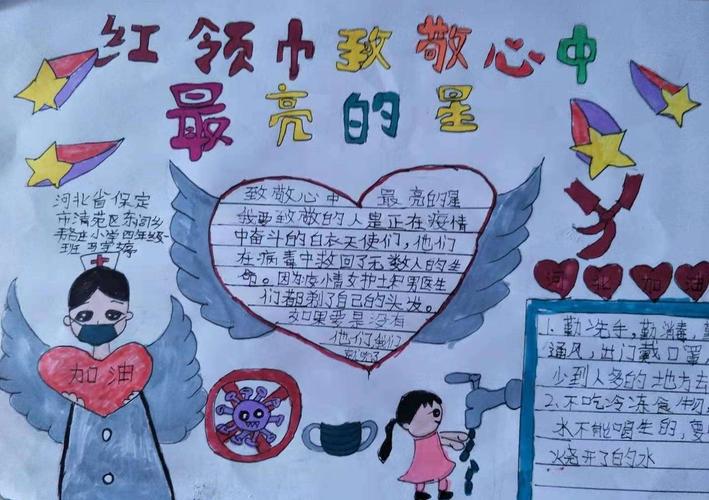 红领巾致敬心中
最亮的星
河北省保定
市清苑区东闾乡
小学四年级一
班
致敬心中 最亮的星
我要致敬的人是正在疫情
中奋斗的白衣天使们，他们
在病毒中救回了无数人的生
命。因为疫情女护士和男医生
们都剃了自己的头发。
如果要是没有
他们我们
加油
河北加油
1.勤洗手，勤消毒，
通风，出门戴口罩
少到人多的地方去
2.不吃冷冻食物，
水不能喝生的，要
烧开了的水